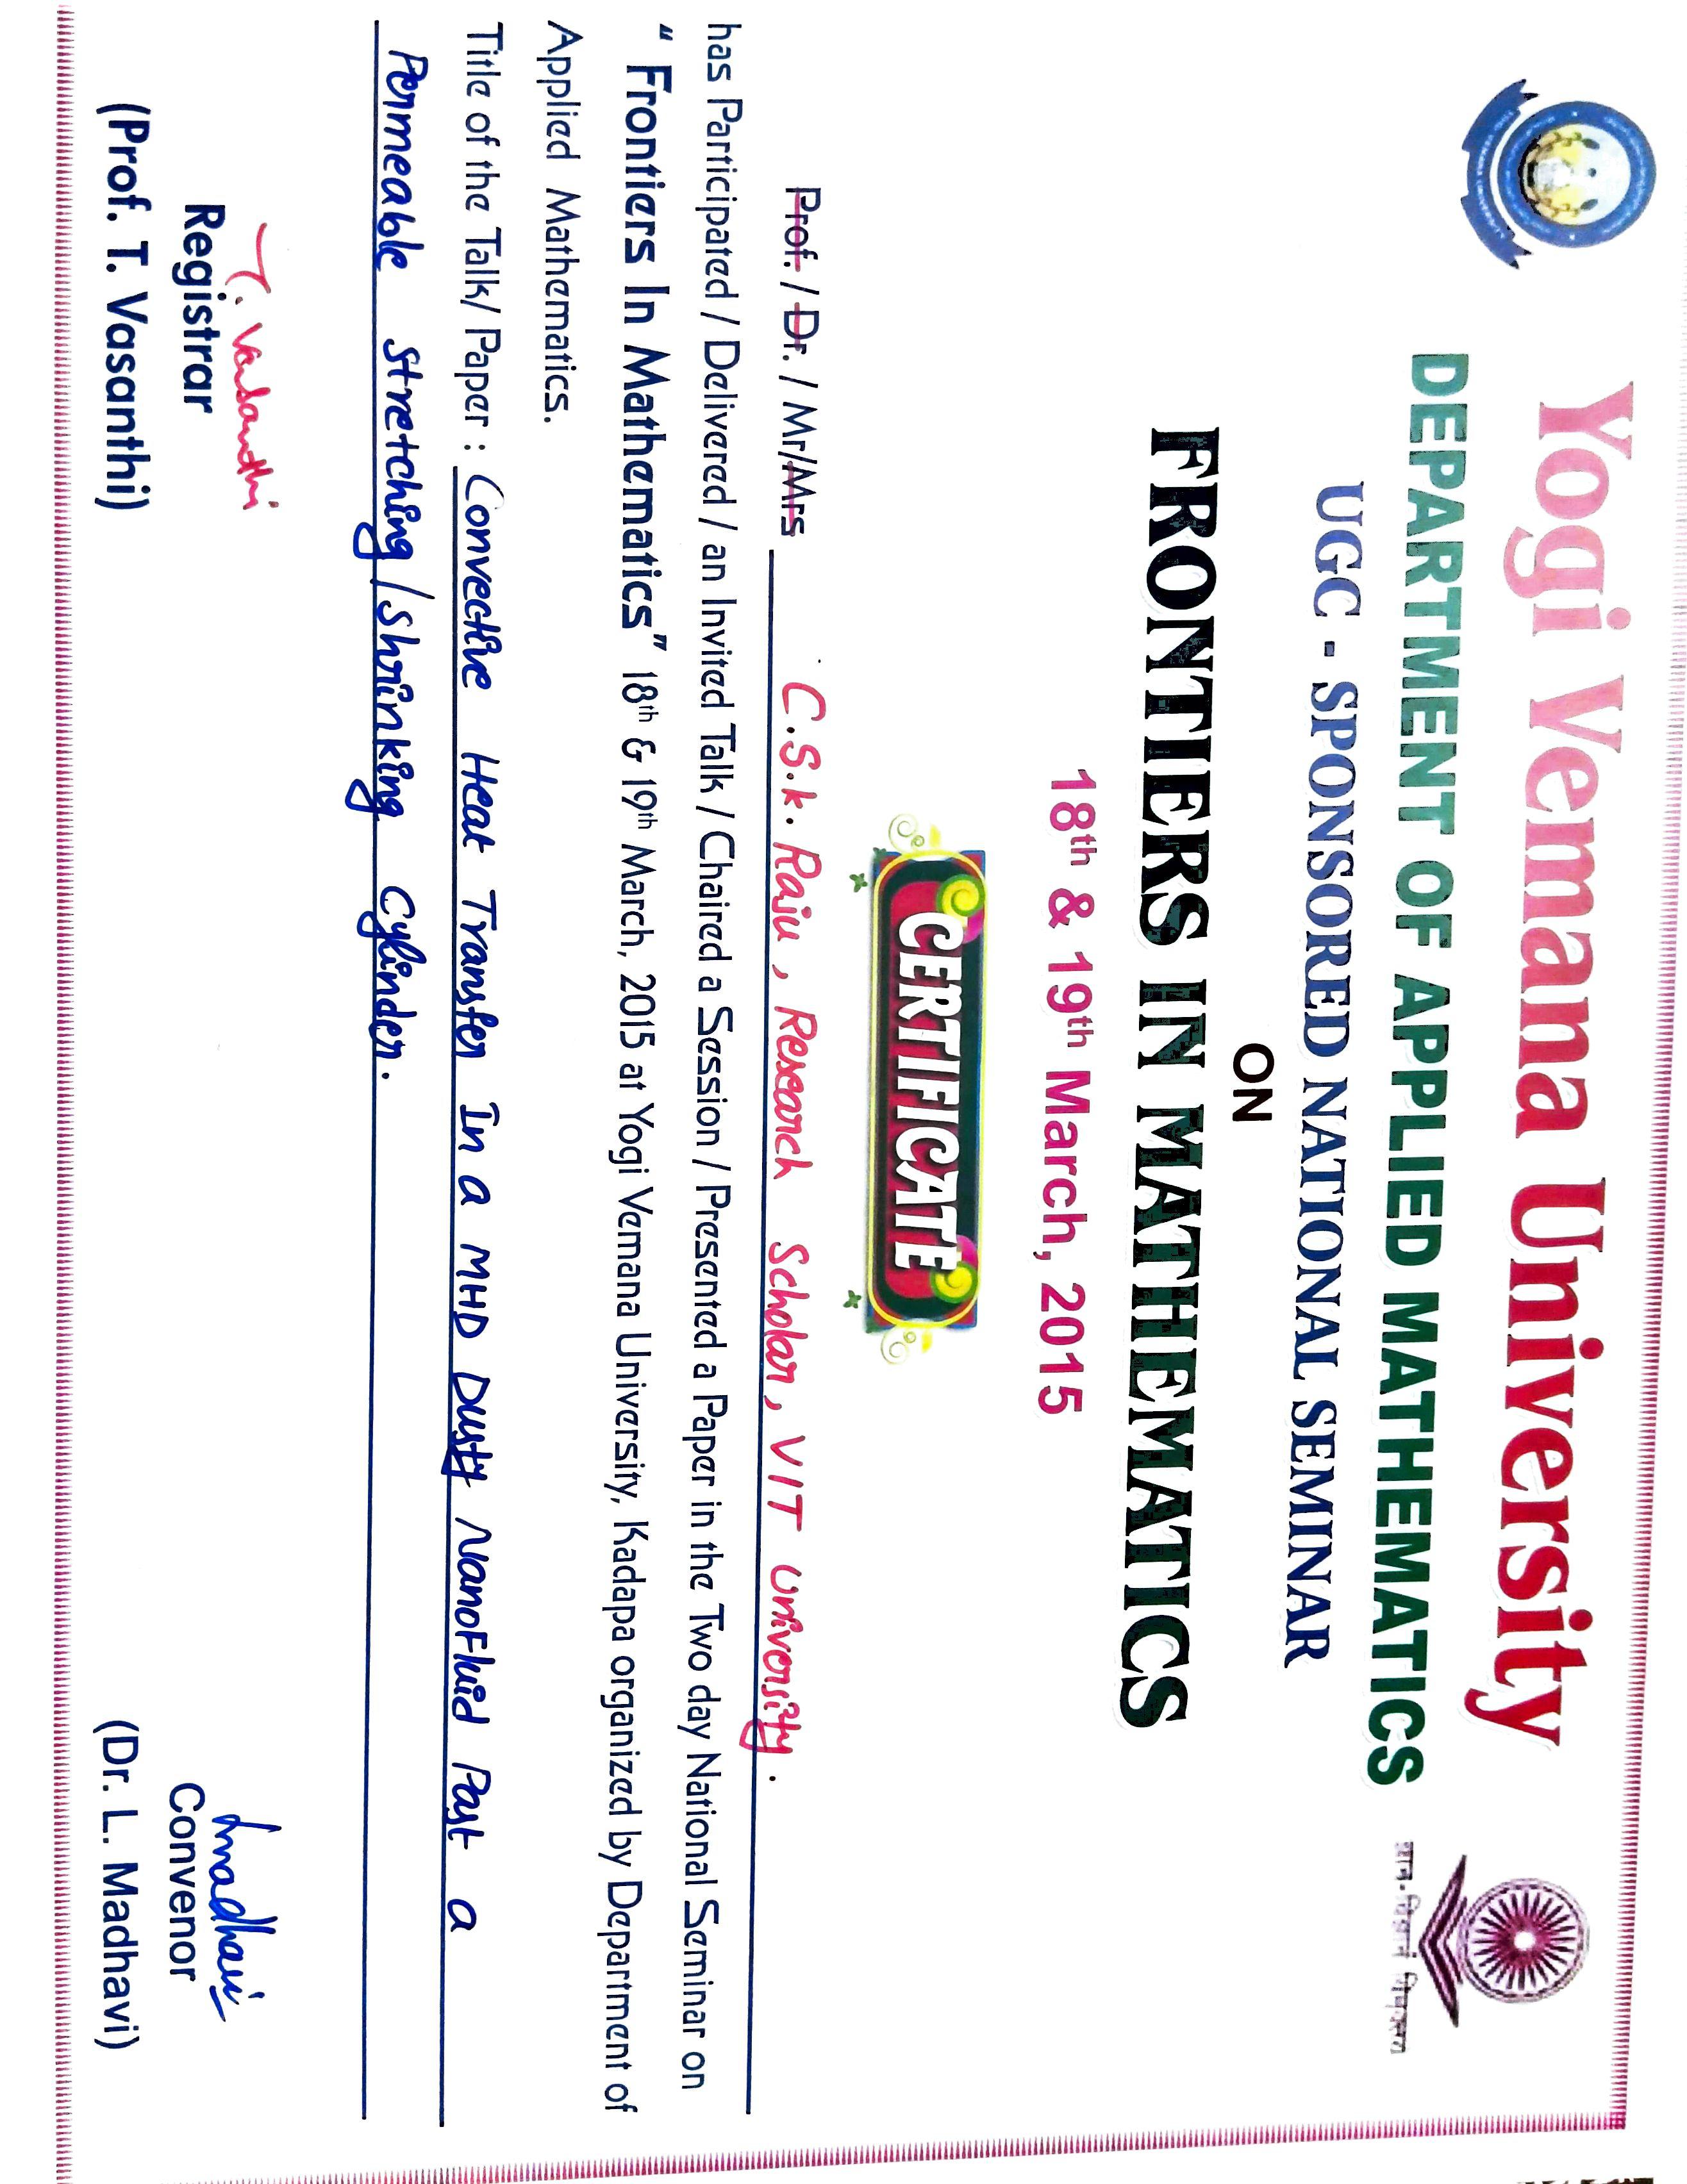 Yogi Vemana University
DEPARTMENT OF APPLIED MATHEMATICS
UGC - SPONSORED NATIONAL SEMINAR
ON
FRONTIERS IN MATHEMATICS
18th & 19th March, 2015
CERTIFICATE
Prof. / Dr. / Mr/Mrs C.S.K. Raju, Research Scholar, VIT University.
has Participated / Delivered / an Invited Talk / Chaired a Session / Presented a Paper in the Two day National Seminar on
“ Frontiers In Mathematics” 18th & 19th March, 2015 at Yogi Vemana University, Kadapa organized by Department of
Applied Mathematics.
Title of the Talk/ Paper : Convective Heat Transfer In a MHD Dusty NanoFluid Past a
Permeable Stretching/Shrinking Cylinder.
T. Vasanthi
Registrar
(Prof. T. Vasanthi)
Lmadhavi
Convenor
(Dr. L. Madhavi)